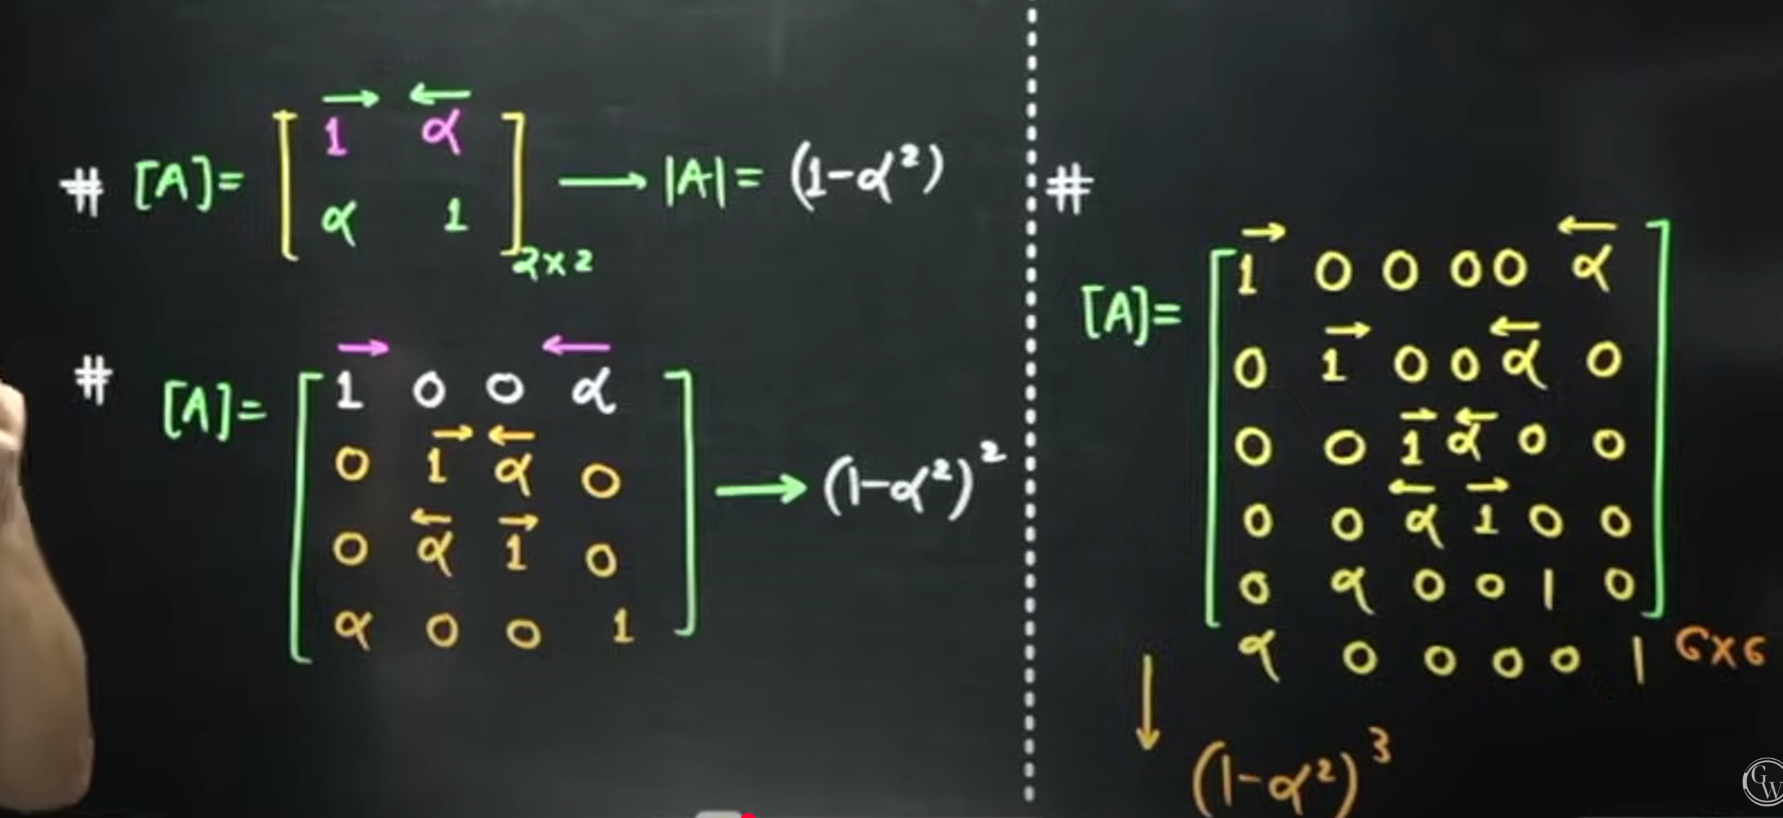 # [A]= [ 1 α
α 1 ]2×2 → |A| = (1-α²)
# [A]= [ 1 0 0 α
0 1 α 0
0 α 1 0
α 0 0 1 ] → (1-α²)²
#
[A]= [ 1 0 0 0 0 α
0 1 0 0 α 0
0 0 1 α 0 0
0 0 α 1 0 0
0 α 0 0 1 0
α 0 0 0 0 1 ] 6×6
↓ (1-α²)³
GW